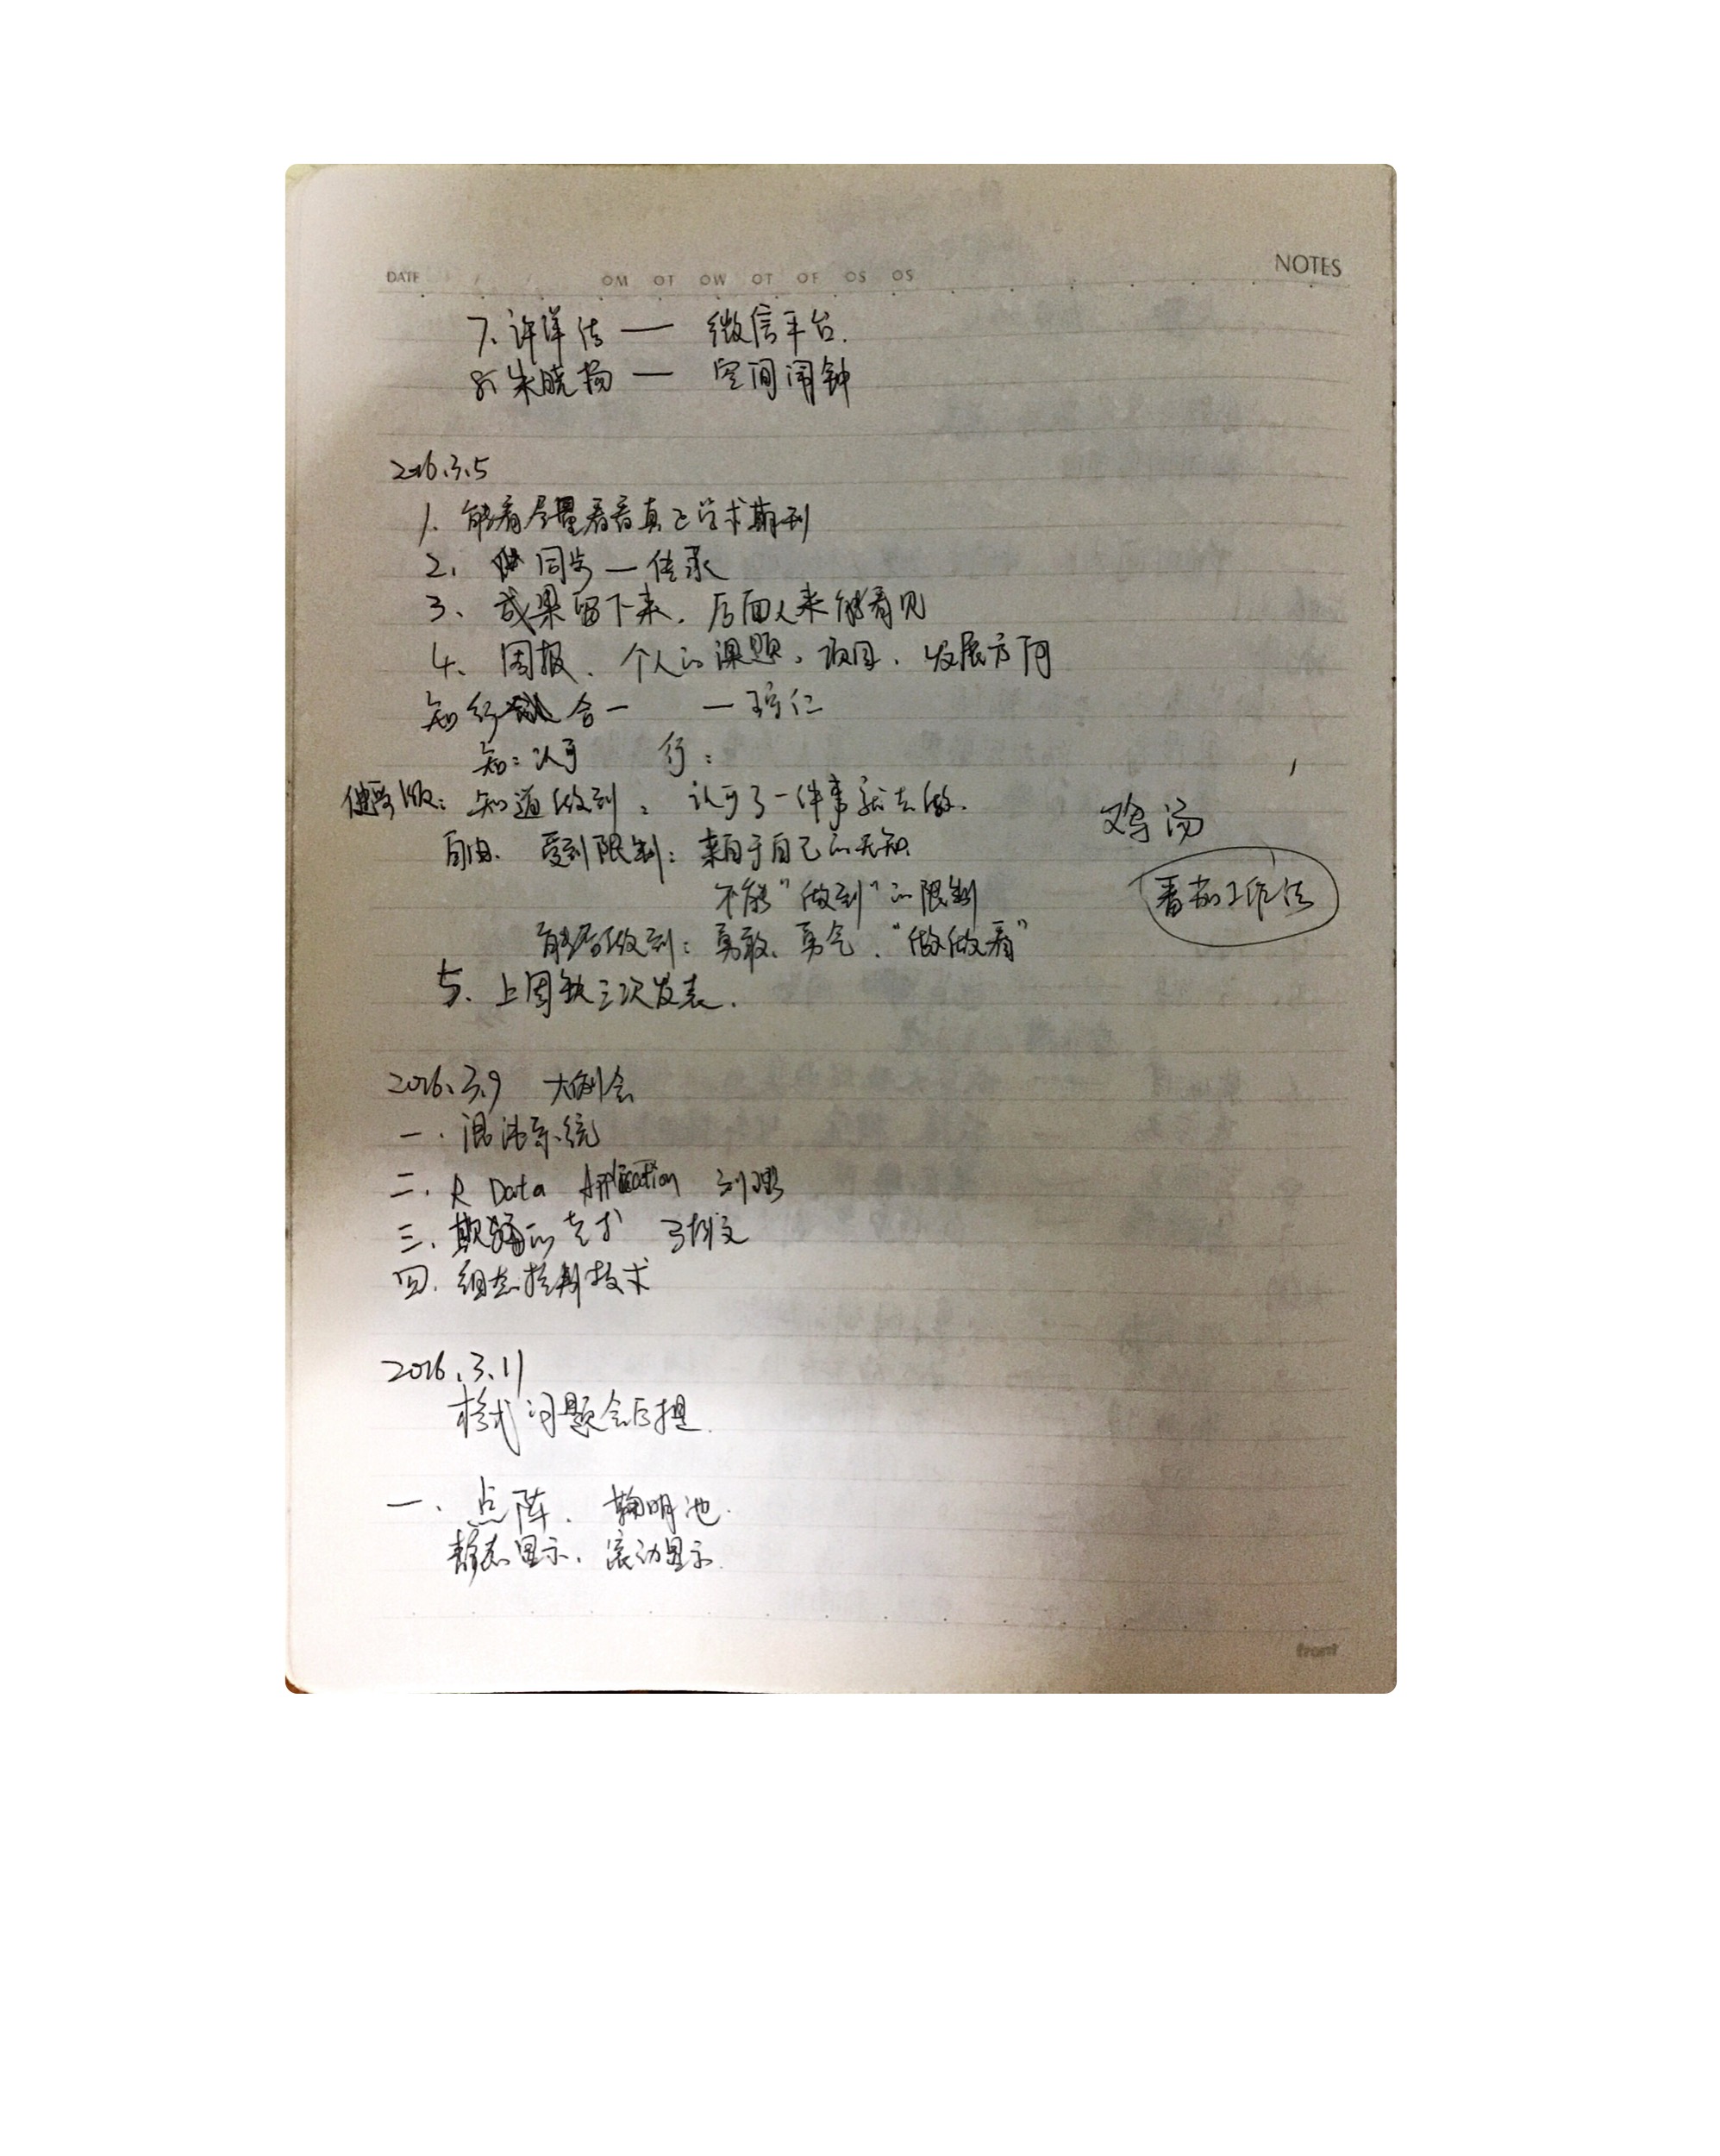 DATE / / OM OT OW OT OF OS OS NOTES
7. 许洋传 — 微信平台.
8. 朱晓扬 — 空间闹钟
2016.3.5
1. 能看尽量看看真正学术期刊
2. 同步 — 传承
3、成果留下来. 后面人来能看见
4、周报、个人的课题、项目、发展方向
知行合一 — 王守仁
知: 认可 行:
知道做到, 认可了一件事就去做.
自由. 受到限制: 来自于自己的无知
鸡汤
不能“做到”的限制
番茄工作法
能否做到: 勇敢、勇气、“做做看”
5. 上周缺三次发表.
2016.3.9 大例会
一. 混沌系统
二. R Data Application 刘
三. 欺骗的艺术
四. 组态控制技术
2016.3.11
格式问题会后提.
一. 点阵. 鞠明池.
静态显示. 滚动显示.
front